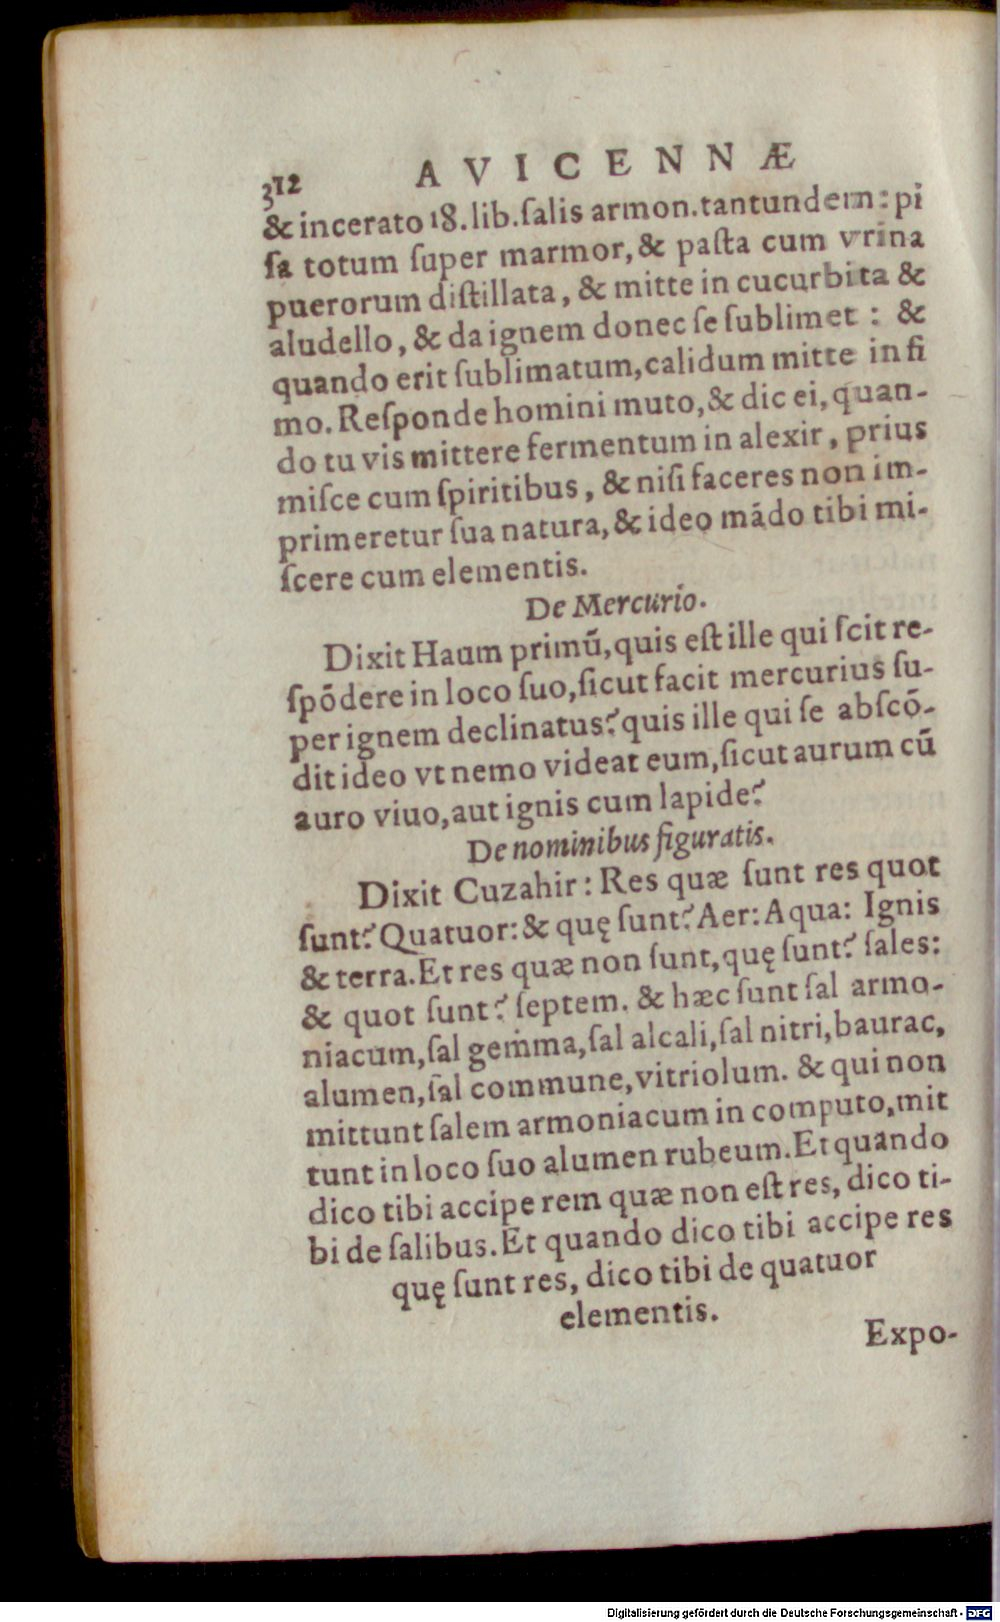 312 AVICENNÆ
& incerato 18. lib. ſalis armon. tantundem: pi
ſa totum ſuper marmor, & paſta cum vrina
puerorum diſtillata, & mitte in cucurbita &
aludello, & da ignem donec ſe ſublimet : &
quando erit ſublimatum, calidum mitte in fi
mo. Reſponde homini muto, & dic ei, quan-
do tu vis mittere fermentum in alexir, prius
miſce cum ſpiritibus, & niſi faceres non im-
primeretur ſua natura, & ideo mãdo tibi mi-
ſcere cum elementis.
De Mercurio.
Dixit Haum primũ, quis eſt ille qui ſcit re-
ſpõdere in loco ſuo, ſicut facit mercurius ſu-
per ignem declinatus? quis ille qui ſe abſcõ-
dit ideo vt nemo videat eum, ſicut aurum cũ
auro viuo, aut ignis cum lapide?
De nominibus figuratis.
Dixit Cuzahir: Res quæ ſunt res quot
ſunt? Quatuor: & quę ſunt? Aer: Aqua: Ignis
& terra. Et res quæ non ſunt, quę ſunt? ſales:
& quot ſunt? ſeptem. & hæc ſunt ſal armo-
niacum, ſal gemma, ſal alcali, ſal nitri, baurac,
alumen, ſal commune, vitriolum. & qui non
mittunt ſalem armoniacum in computo, mit
tunt in loco ſuo alumen rubeum. Et quando
dico tibi accipe rem quæ non eſt res, dico ti-
bi de ſalibus. Et quando dico tibi accipe res
quę ſunt res, dico tibi de quatuor
elementis.
Expo-
Digitalisierung gefördert durch die Deutsche Forschungsgemeinschaft - DFG